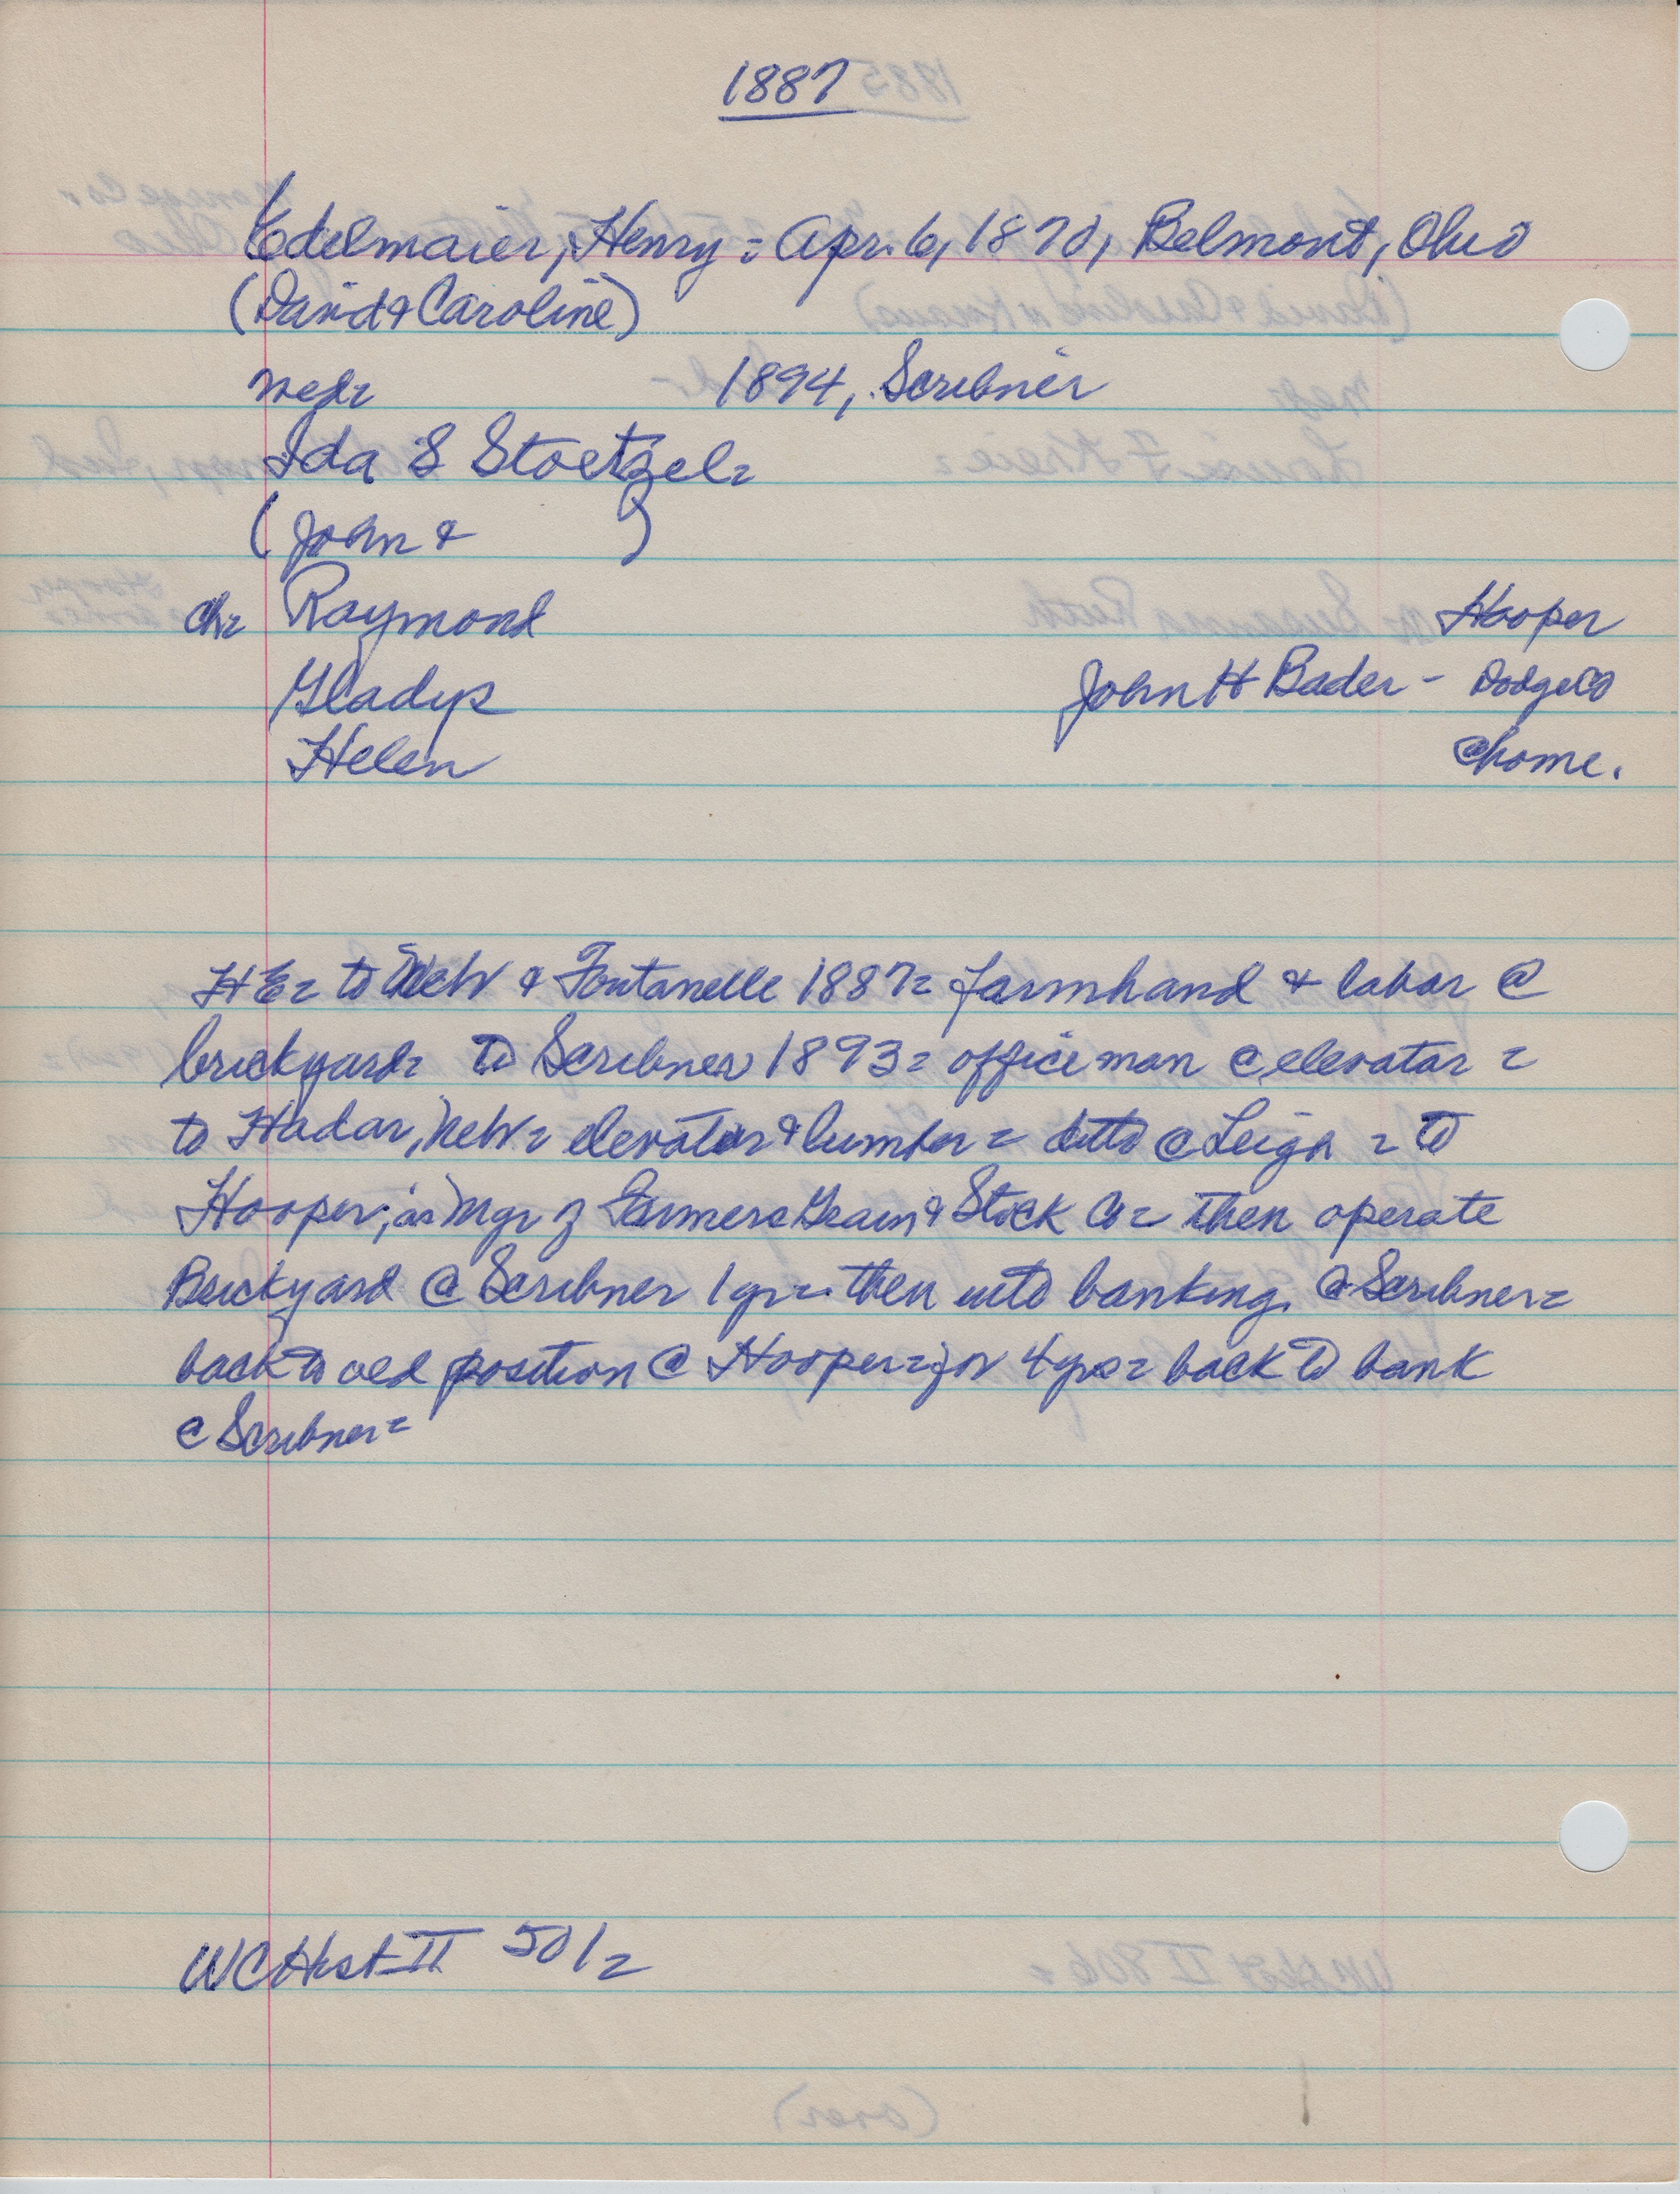 1887
Edelmaier, Henry = Apr. 6, 1870, Belmont, Ohio
(David & Caroline)
wed= 1894, Scribner
Ida S Stoetzel=
(John & )
ch= Raymond Hooper
Gladys John H Bader - Dodge Co
Helen @home.
HE= to Neb & Fontanelle 1887= farmhand & labor @
brickyard= to Scribner 1893= office man @ elevator =
to Hadar, Neb= elevator & lumber = ditto @ Leigh = to
Hooper, as Mgr of Farmers Grain & Stock Co= then operate
Brickyard @ Scribner 1 yr= then into banking @ Scribner=
back to old position @ Hooper= for 4 yrs= back to bank
@ Scribner=
WCHist II 501=